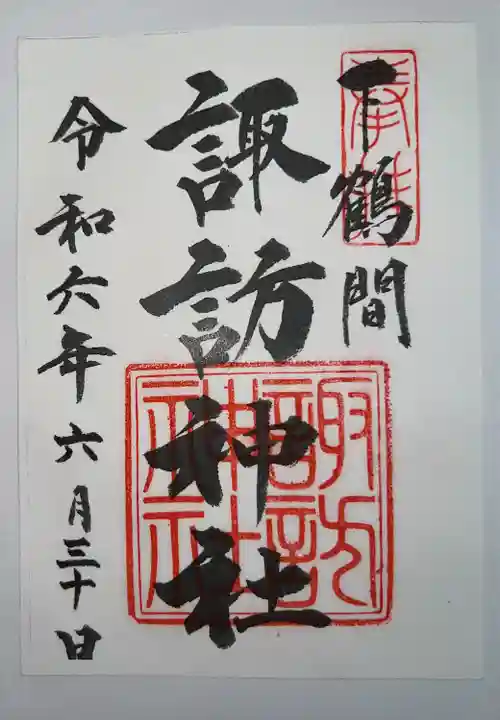 下鶴間
奉拝
諏訪神社
諏訪神社
令和六年六月三十日